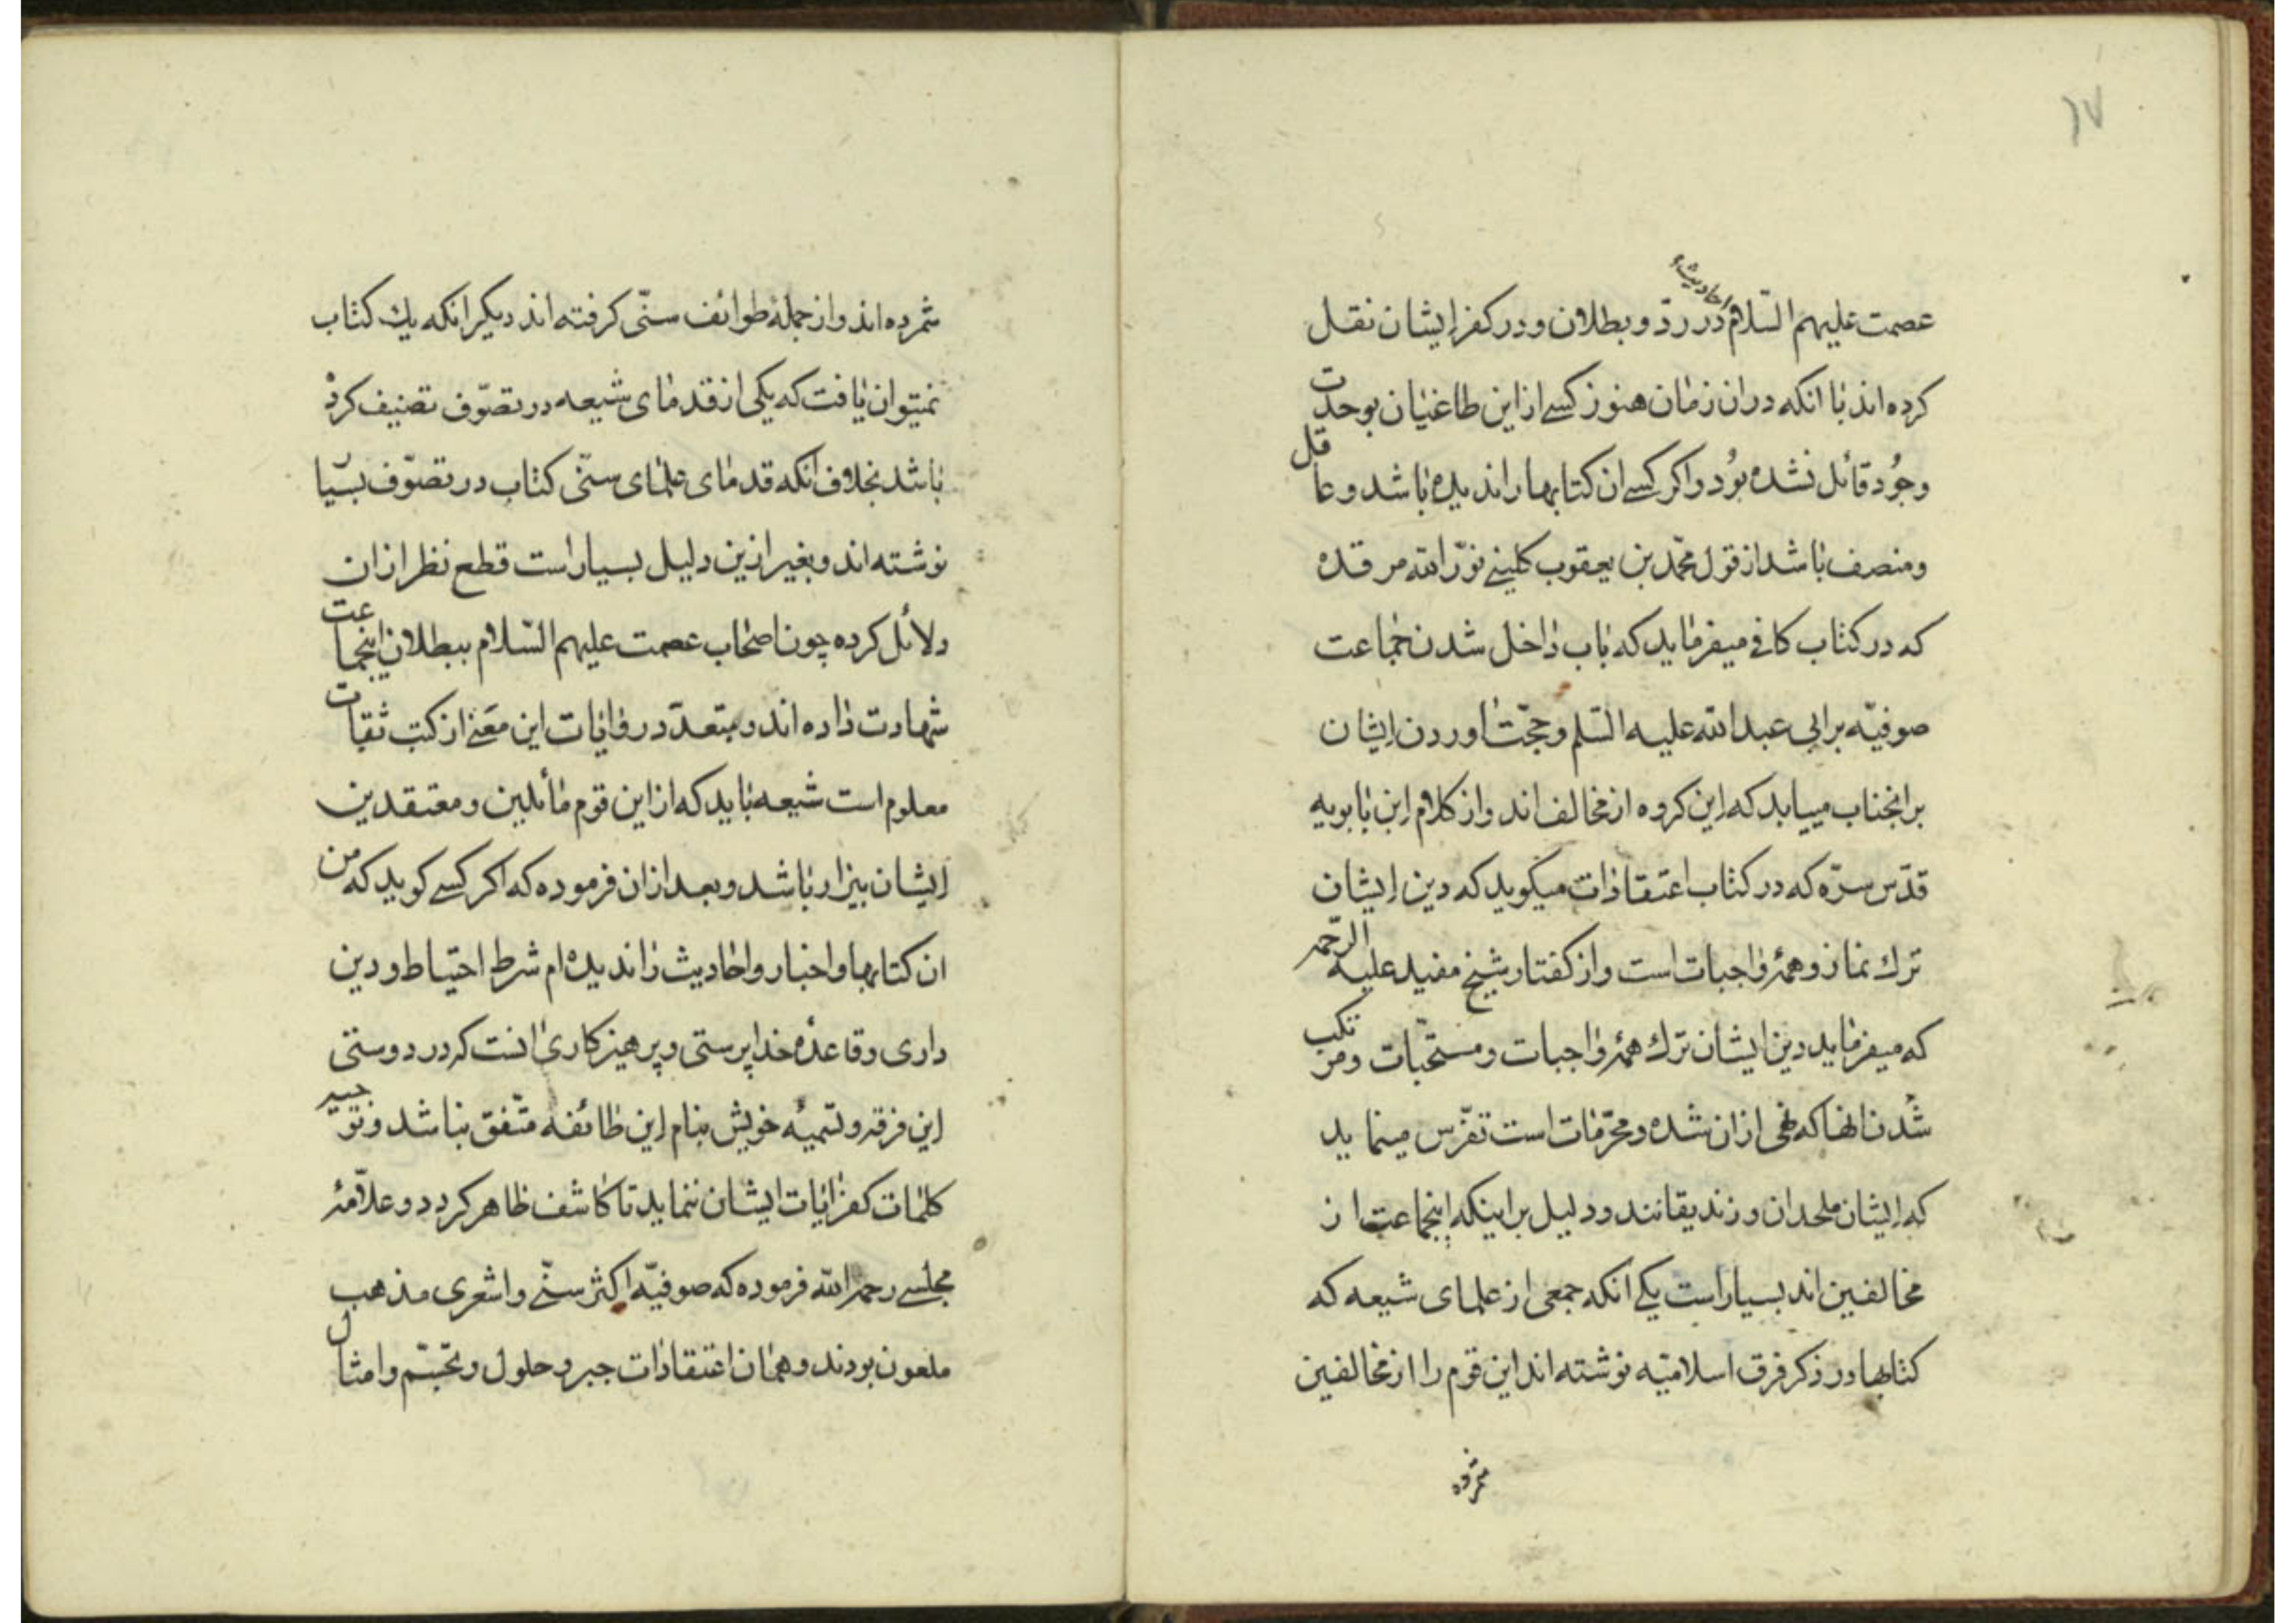 ۱۷
احادیث
عصمت علیهم السّلام در ردّ و بطلان و در کفر ایشان نقل
کرده اند با انکه دران زمان هنوز کسے از این طاغیان بوحدت
وجُود قائل نشده بوُد و اکر کسے ان کتابها را ندیده باشد و عاقل
و منصف باشد از قول محمّد بن یعقوب کلینے نوّر الله مرقده
که در کتاب کافے میفرماید که باب داخل شدن جماعت
صوفیّه بر ابی عبد الله علیه السّلم و حجّت اوردن ایشان
بر انجناب میابد که این کروه از مخالف اند و از کلام ابن بابویه
قدّس سرّه که در کتاب اعتقادات میگوید که دین ایشان
ترك نماز و همهٔ واجبات است و از کفتار شیخ مفید علیه الرّحمه
که میفرماید دین ایشان ترك همهٔ واجبات و مستحّبات و مرتکب
شدن انها که نهی ازان شده و محرّمات است تفرّس مینماید
که ایشان ملحدان و زندیقانند و دلیل بر اینکه اینجماعت از
مخالفین اند بسیار است یکے انکه جمعی از علمای شیعه که
کتابها در ذکر فرق اسلامیّه نوشته اند این قوم را از مخالفین
شمرده
شمرده اند و از جملهٔ طوائف سنّی کرفته اند دیکر انکه یك کتاب
نمیتوان یافت که یکی از قدمای شیعه در تصوّف تصنیف کرده
باشد بخلاف انکه قدمای علمای سنّی کتاب در تصوّف بسیار
نوشته اند و بغیر ازین دلیل بسیار است قطع نظر ازان
دلائل کرده چون اصحاب عصمت علیهم السّلام ببطلان اینجماعت
شهادت داده اند و بتعدّد روایات این معنے از کتب ثقات
معلوم است شیعه باید که از این قوم مائلین و معتقدین
ایشان بیزار باشد و بعد ازان فرموده که اکر کسے کوید که من
ان کتابها و اخبار و احادیث را ندیده ام شرط احتیاط و دین
داری و قاعدهٔ خدا پرستی و پرهیز کاری انست که در دوستی
این فرقه و تسمیهٔ خویش بنام این طائفه متّفق نباشد و توجیه
کلمات کفر ایات ایشان ننماید تا کاشف ظاهر کردد و علاّمهٔ
مجلسے رحمه الله فرموده که صوفیّه اکثر سنّے و اشعری مذهب
ملعون بودند و همان اعتقادات جبر و حلول و تجسّم و امثال